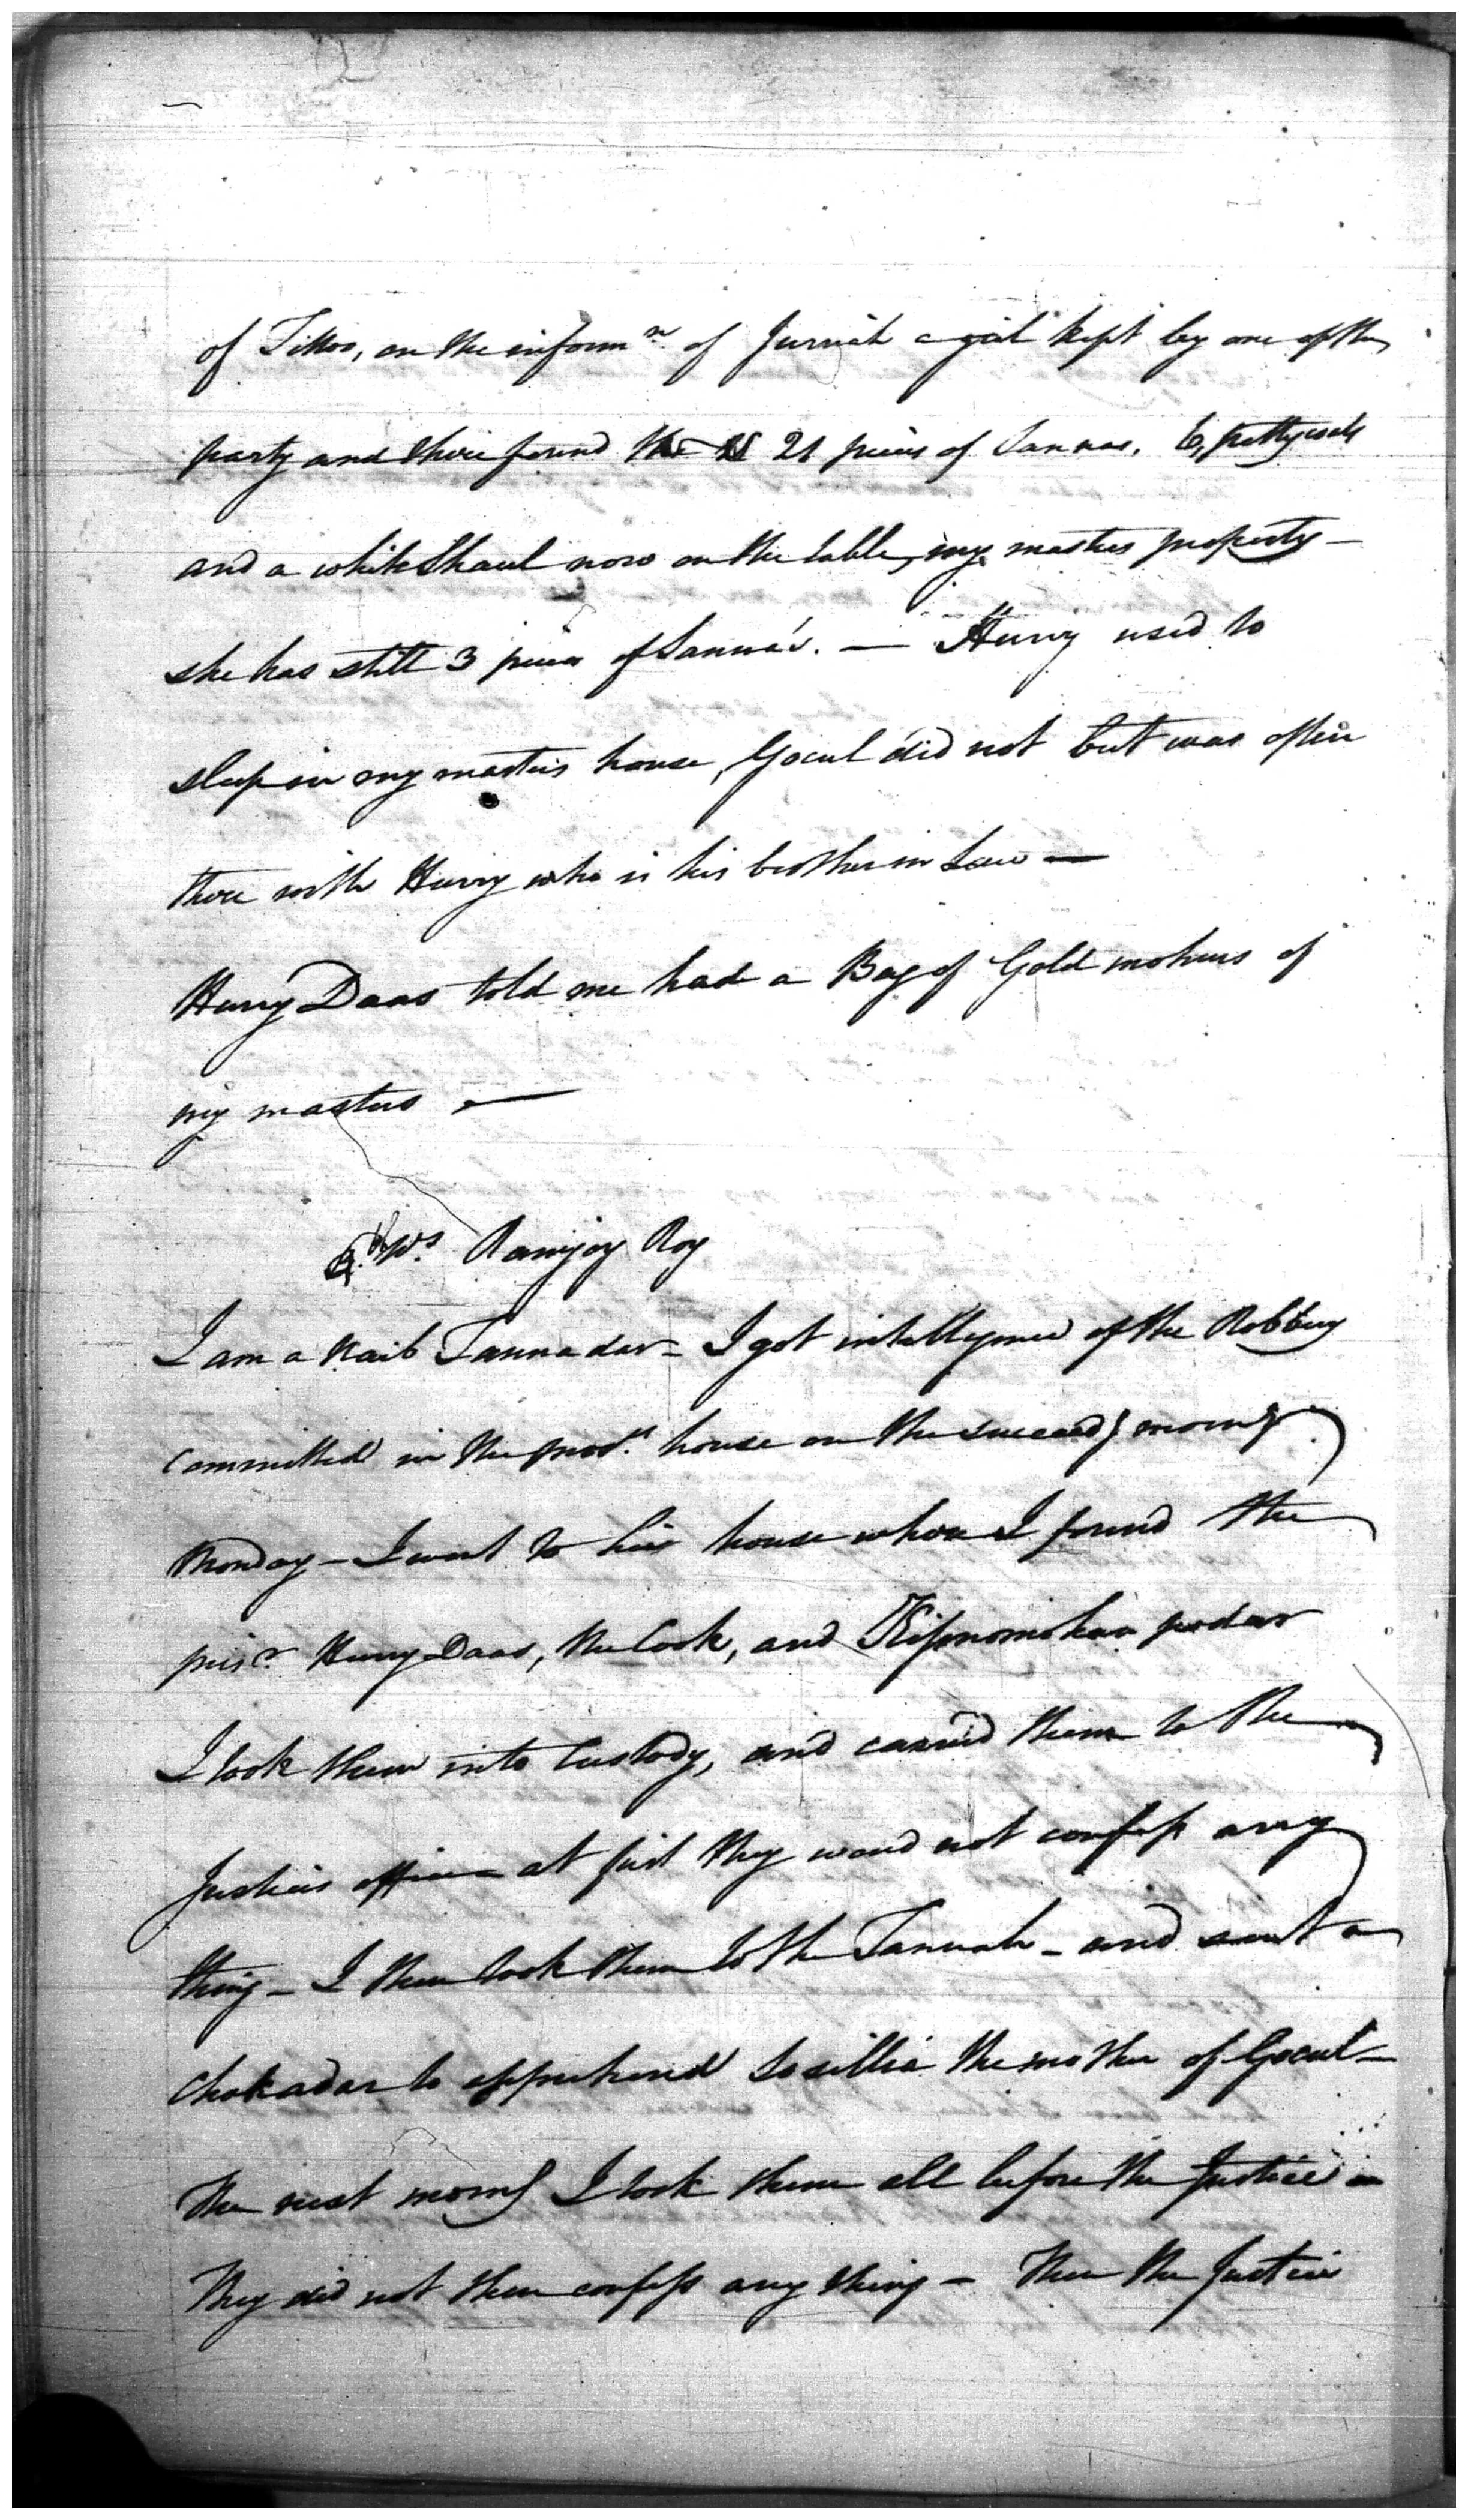 of Tittoo, on the inform.n of Jurriah a girl kept by one of the
party and there found 21 pieces of Sannas, 6 pettycoats
and a white Shaul now on the table, my masters property —
she has still 3 pieces of Sannas. — Hurry used to
sleep in my masters house, Gocul did not but was often
there with Hurry who is his brother in Law —
Hurry Daas told me had a Bag of Gold mohurs of
my masters —
4th Ws. Ramjoy Roy
I am a Naib Tannadar — I got intelligence of the Robbery
committed in the pros.rs house on the succeedg morng
Monday — I went to his house where I found the
pris.r Hurry Daas, the Cook, and Kissnomohun podar
I took them into Custody, and carried them to the
Justices office at first they woud not confess any
thing — I then took them to the Tannah — and sent a
Chokadar to apprehend the mother of Gocul —
The next morng I took them all before the Justice —
They did not then confess any thing — Then the Justice